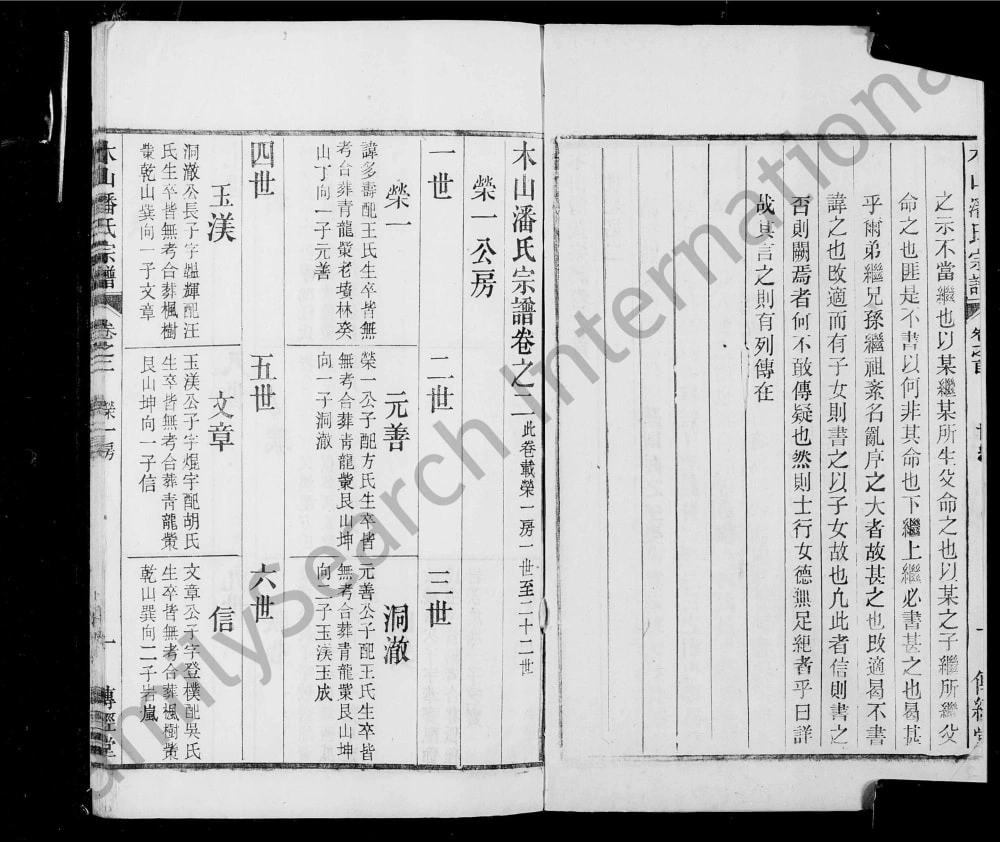 之示不當繼也以某繼某所生父命之也以某之子繼所繼父
命之也匪是不書以何非其命也下繼上繼必書甚之也曷甚
乎爾弟繼兄孫繼祖紊名亂序之大者故甚之也改適曷不書
諱之也改適而有子女則書之以子女故也凡此者信則書之
否則闕焉者何不敢傳疑也然則士行女德無足紀者乎曰詳
哉其言之則有列傳在
木山潘氏宗譜卷之二 此卷載榮一房一世至二十二世
榮一公房
一世
二世
三世
榮一
諱多壽配王氏生卒皆無
考合葬青龍䉙老墳林癸
山丁向一子元善
元善
榮一公子配方氏生卒皆
無考合葬青龍䉙艮山坤
向一子洞澈
洞澈
元善公子配王氏生卒皆
無考合葬青龍䉙艮山坤
向二子玉渼玉成
四世
五世
六世
玉渼
洞澈公長子字韞輝配汪
氏生卒皆無考合葬楓樹
䉙乾山巽向一子文章
文章
玉渼公子字焜宇配胡氏
生卒皆無考合葬青龍䉙
艮山坤向一子信
信
文章公子字登樸配吳氏
生卒皆無考合葬楓樹䉙
乾山巽向二子岩嵐
木山潘氏宗譜 卷之二 榮一房 一 傳經堂
FamilySearch International